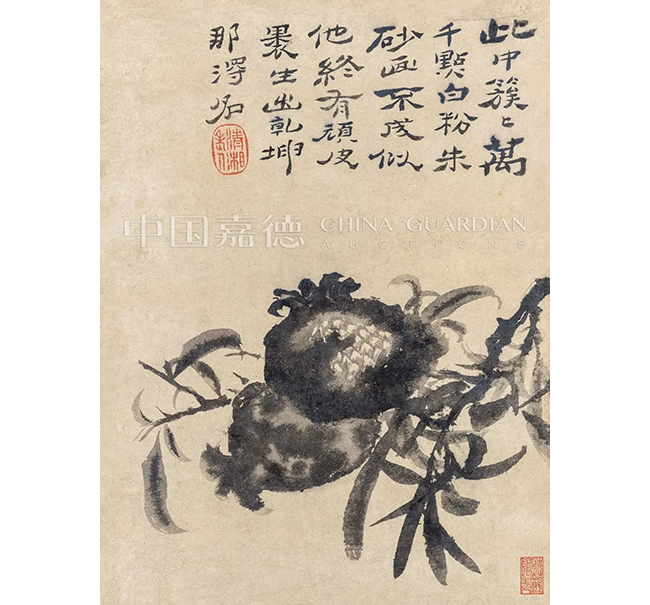 此中簇〻萬
千點白粉朱
砂画不成似
他終有頑皮
裹生出乾坤
那淂名
清湘
老人
中国嘉德 CHINA GUARDIAN
AUCTIONS